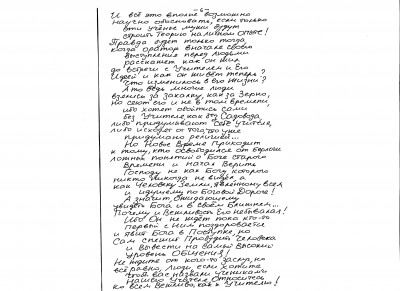 - 6 -
И всё это вполне возможно
научно обосновать, если только
эти учёные мужи будут
строить Теорию на личном опыте!
Правда будет только тогда,
когда оратор вначале своего
выступления перед людьми
расскажет как он жил
до встречи с Учителем и Его
Идеей и как он живёт теперь?
Что изменилось в его жизни?
А то ведь многие люди
взялись за Закалку, как за зерно,
но сеют его и не в том времени,
ибо хотят обойтись сами
Без Учителя как без Садовода,
либо придумывают себе учителя,
либо исходя от того что уже
придумано религией...
Но Новое Время Приходит
к тому, кто освободился от
ложных понятий о Боге старого
Времени и начал Верить
Господу не как Богу которого
никто никогда не видел, а
как Человеку Земли, явленному всем
и идущему по Боговой Дороге!
А значит, ожидающему
увидеть Бога и в своём Ближнем...
Почему и Вежливость Его небывалая!
Ибо Он не ждёт пока кто-то
первый с Ним поздоровается
и явит Бога в Поступке, но
Сам спешит Пробудить Человека
и вывести на самый высокий
уровень Общения!
Не ждите от кого-то
всё равно, люди, если хотите
чтоб вас назвали учениками
Нашего Учителя относитесь
ко всем вежливо, как к Учителю!